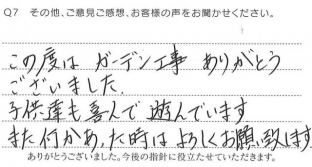 Q7 その他、ご意見ご感想、お客様の声をお聞かせください。
この度は ガーデン工事 ありがとう
ございました。
子供達も喜んで 遊んでいます
また何かあった時は よろしくお願い致します
ありがとうございました。今後の指針に役立たせていただきます。